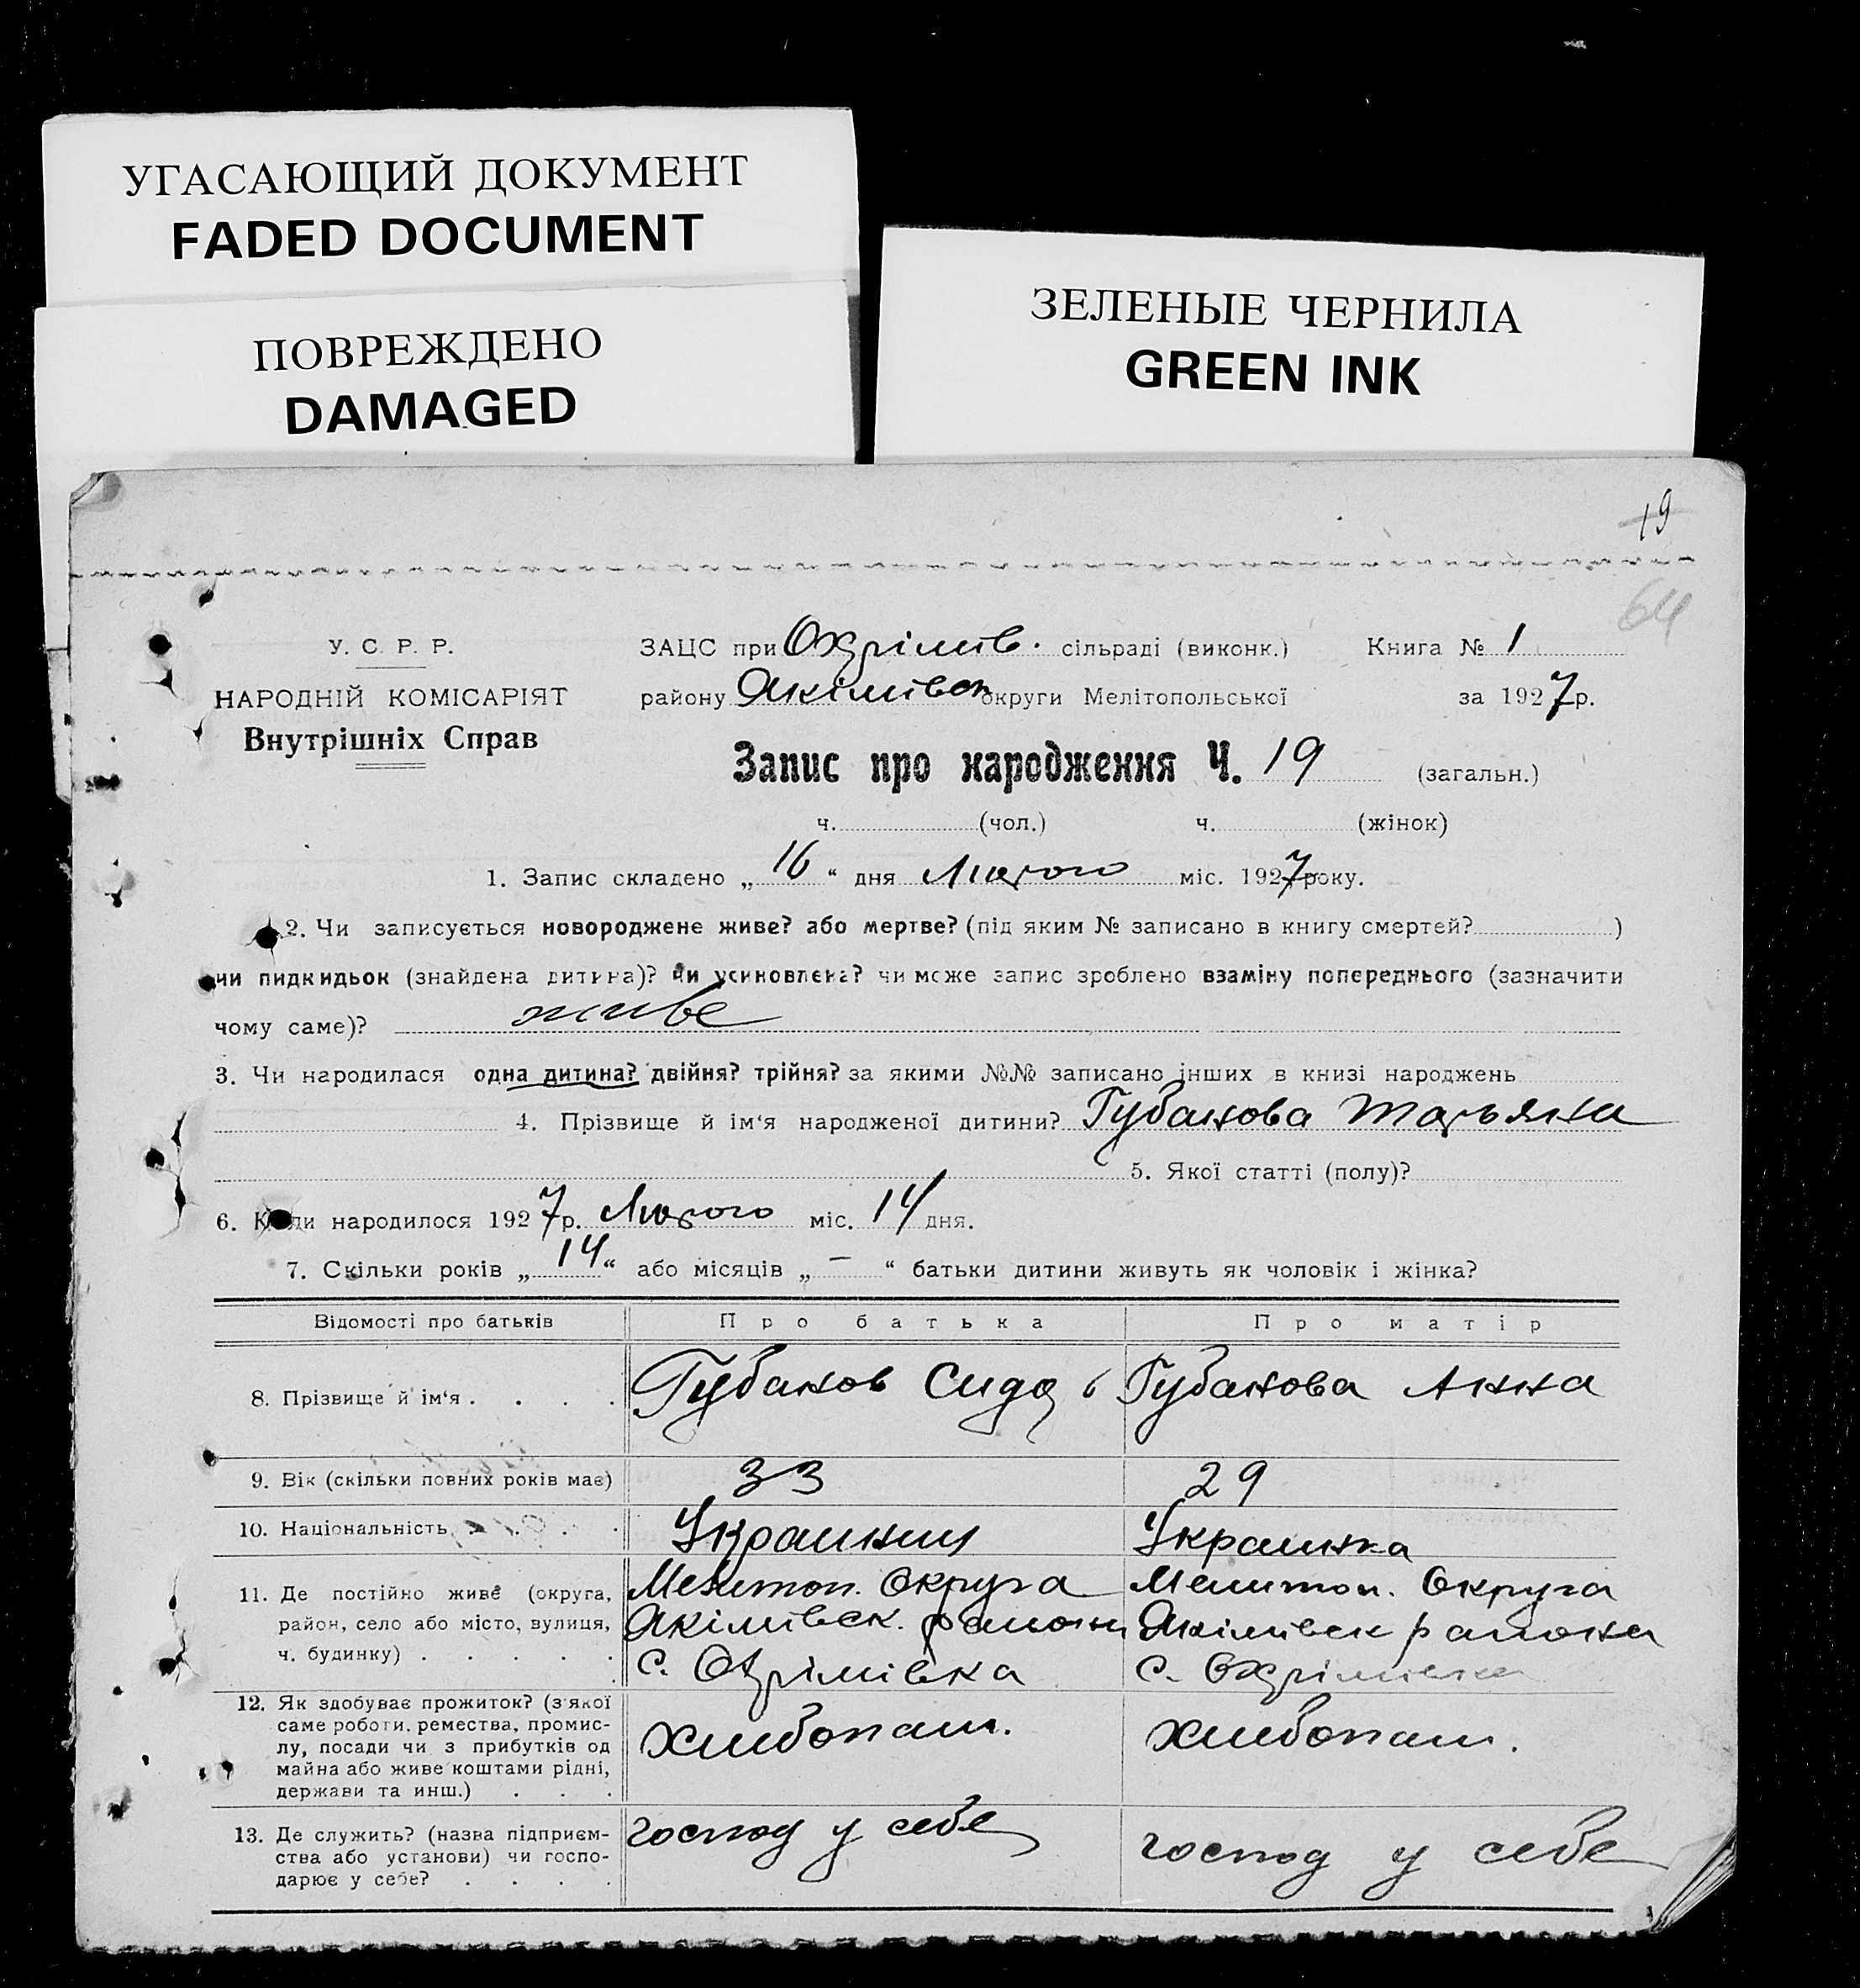 УГАСАЮЩИЙ ДОКУМЕНТ
FADED DOCUMENT
ПОВРЕЖДЕНО
DAMAGED
ЗЕЛЕНЫЕ ЧЕРНИЛА
GREEN INK
19
64
У. С. Р. Р.
НАРОДНІЙ КОМІСАРІЯТ
Внутрішніх Справ
ЗАЦС при Охрімів. сільраді (виконк.) Книга № 1
району Якімівск округи Мелітопольської за 1927 р.
Запис про народження Ч. 19 (загальн.)
ч. (чол.) ч. (жінок)
1. Запис складено „ 16 “ дня Лютого міс. 1927 року.
2. Чи записується новороджене живе? або мертве? (під яким № записано в книгу смертей? )
чи пидкидьок (знайдена дитина)? чи усиновлена? чи може запис зроблено взаміну попереднього (зазначити
чому саме)? живе
3. Чи народилася одна дитина? двійня? трійня? за якими №№ записано інших в книзі народжень
4. Прізвище й ім‘я народженої дитини? Губанова Татьяна
5. Якої статті (полу)?
6. Коли народилося 1927 р. Лютого міс. 14 дня.
7. Скільки років „ 14 “ або місяців „ — “ батьки дитини живуть як чоловік і жінка?
Відомості про батьків Про батька Про матір
8. Прізвище й ім‘я . . . . Губанов Губанова Анна
9. Вік (скільки повних років має) 33 29
10. Національність . . . . Украинец Украинка
11. Де постійно живе (округа, район, село або місто, вулиця, ч. будинку) . . . . .
Мелитоп. Округа
Якімівск. района
с. Охрімівка
Мелитоп. Округа
Якімівск района
с. Охрімівка
12. Як здобуває прожиток? (з якої
саме роботи, ремества, промис-
лу, посади чи з прибутків од
майна або живе коштами рідні,
держави та инш.) . . .
Хлибопаш.
Хлибопаш.
13. Де служить? (назва підприєм-
ства або установи) чи госпо-
дарює у себе? . . . .
господ у себе
господ у себе